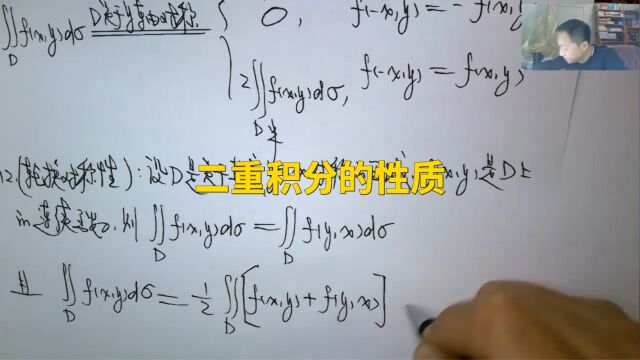 ∬_D f(x,y)dσ D关于y轴对称 { 0, f(-x,y) = -f(x,y)
2∬_{D_1} f(x,y)dσ, f(-x,y) = f(x,y)
二重积分的性质
12.(轮换对称性):设D是关于 f(x,y)是D上
的连续函数,则 ∬_D f(x,y)dσ = ∬_D f(y,x)dσ
且 ∬_D f(x,y)dσ = 1/2 ∬_D [f(x,y) + f(y,x)]